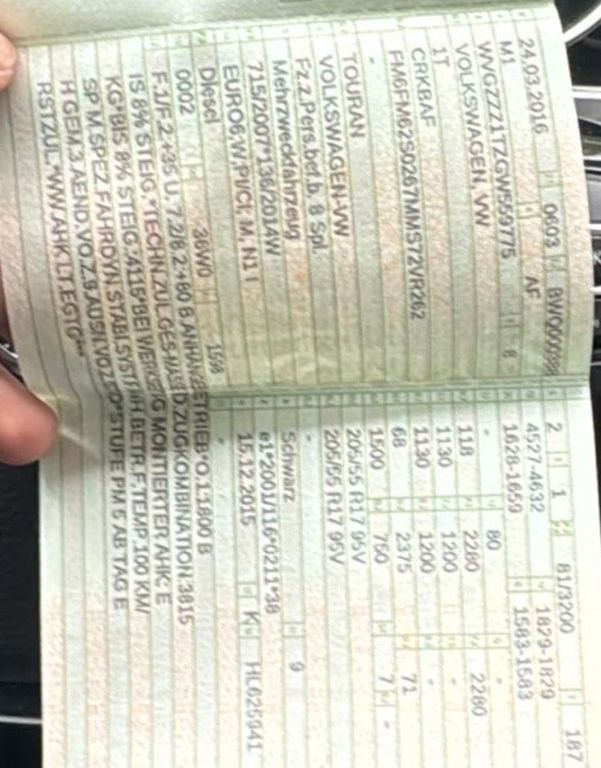 24.03.2016 0603 BWQ00008
M1 AF
WVGZZZ1TZGW559775 8
VOLKSWAGEN, VW
1T
CRKBAF
FM6FM62S0267MMS72VR262
-
TOURAN
VOLKSWAGEN-VW
Fz.z.Pers.bef.b. 8 Spl.
Mehrzweckfahrzeug
715/2007*136/2014W
EURO6;W;PI/CI; M, N1 I
Diesel
0002 36W0 1598
2 1 81/3200 187
4527-4632 1829-1829
1628-1659 1583-1583
- 80 -
118 2280 2280
1130 1200 -
1130 1200 -
68 2375 71
1500 750 7 -
205/55 R17 95V
205/55 R17 95V
-
Schwarz 9
e1*2001/116*0211*38
15.12.2015 K HL625941
-
F.1/F.2:+35 U. 7.2/8.2:+80 B.ANHÄNGEBETRIEB*O.1:1800 B
IS 8% STEIG.*TECHN.ZUL.GES-MASSE D.ZUGKOMBINATION:3815
KG*BIS 8% STEIG.:4115*BEI WERKSEITIG MONTIERTER AHK: E
SP M.SPEZ.FAHRDYN.STABI.SYST.F.ANH BETR.F.TEMP.100 KM/
H GEM.3.AEND.VO.Z.9.AUSN.VO.Z.STVO*STUFE PM 5 AB TAG E
RSTZUL.*WW.AHK LT.EGTG***